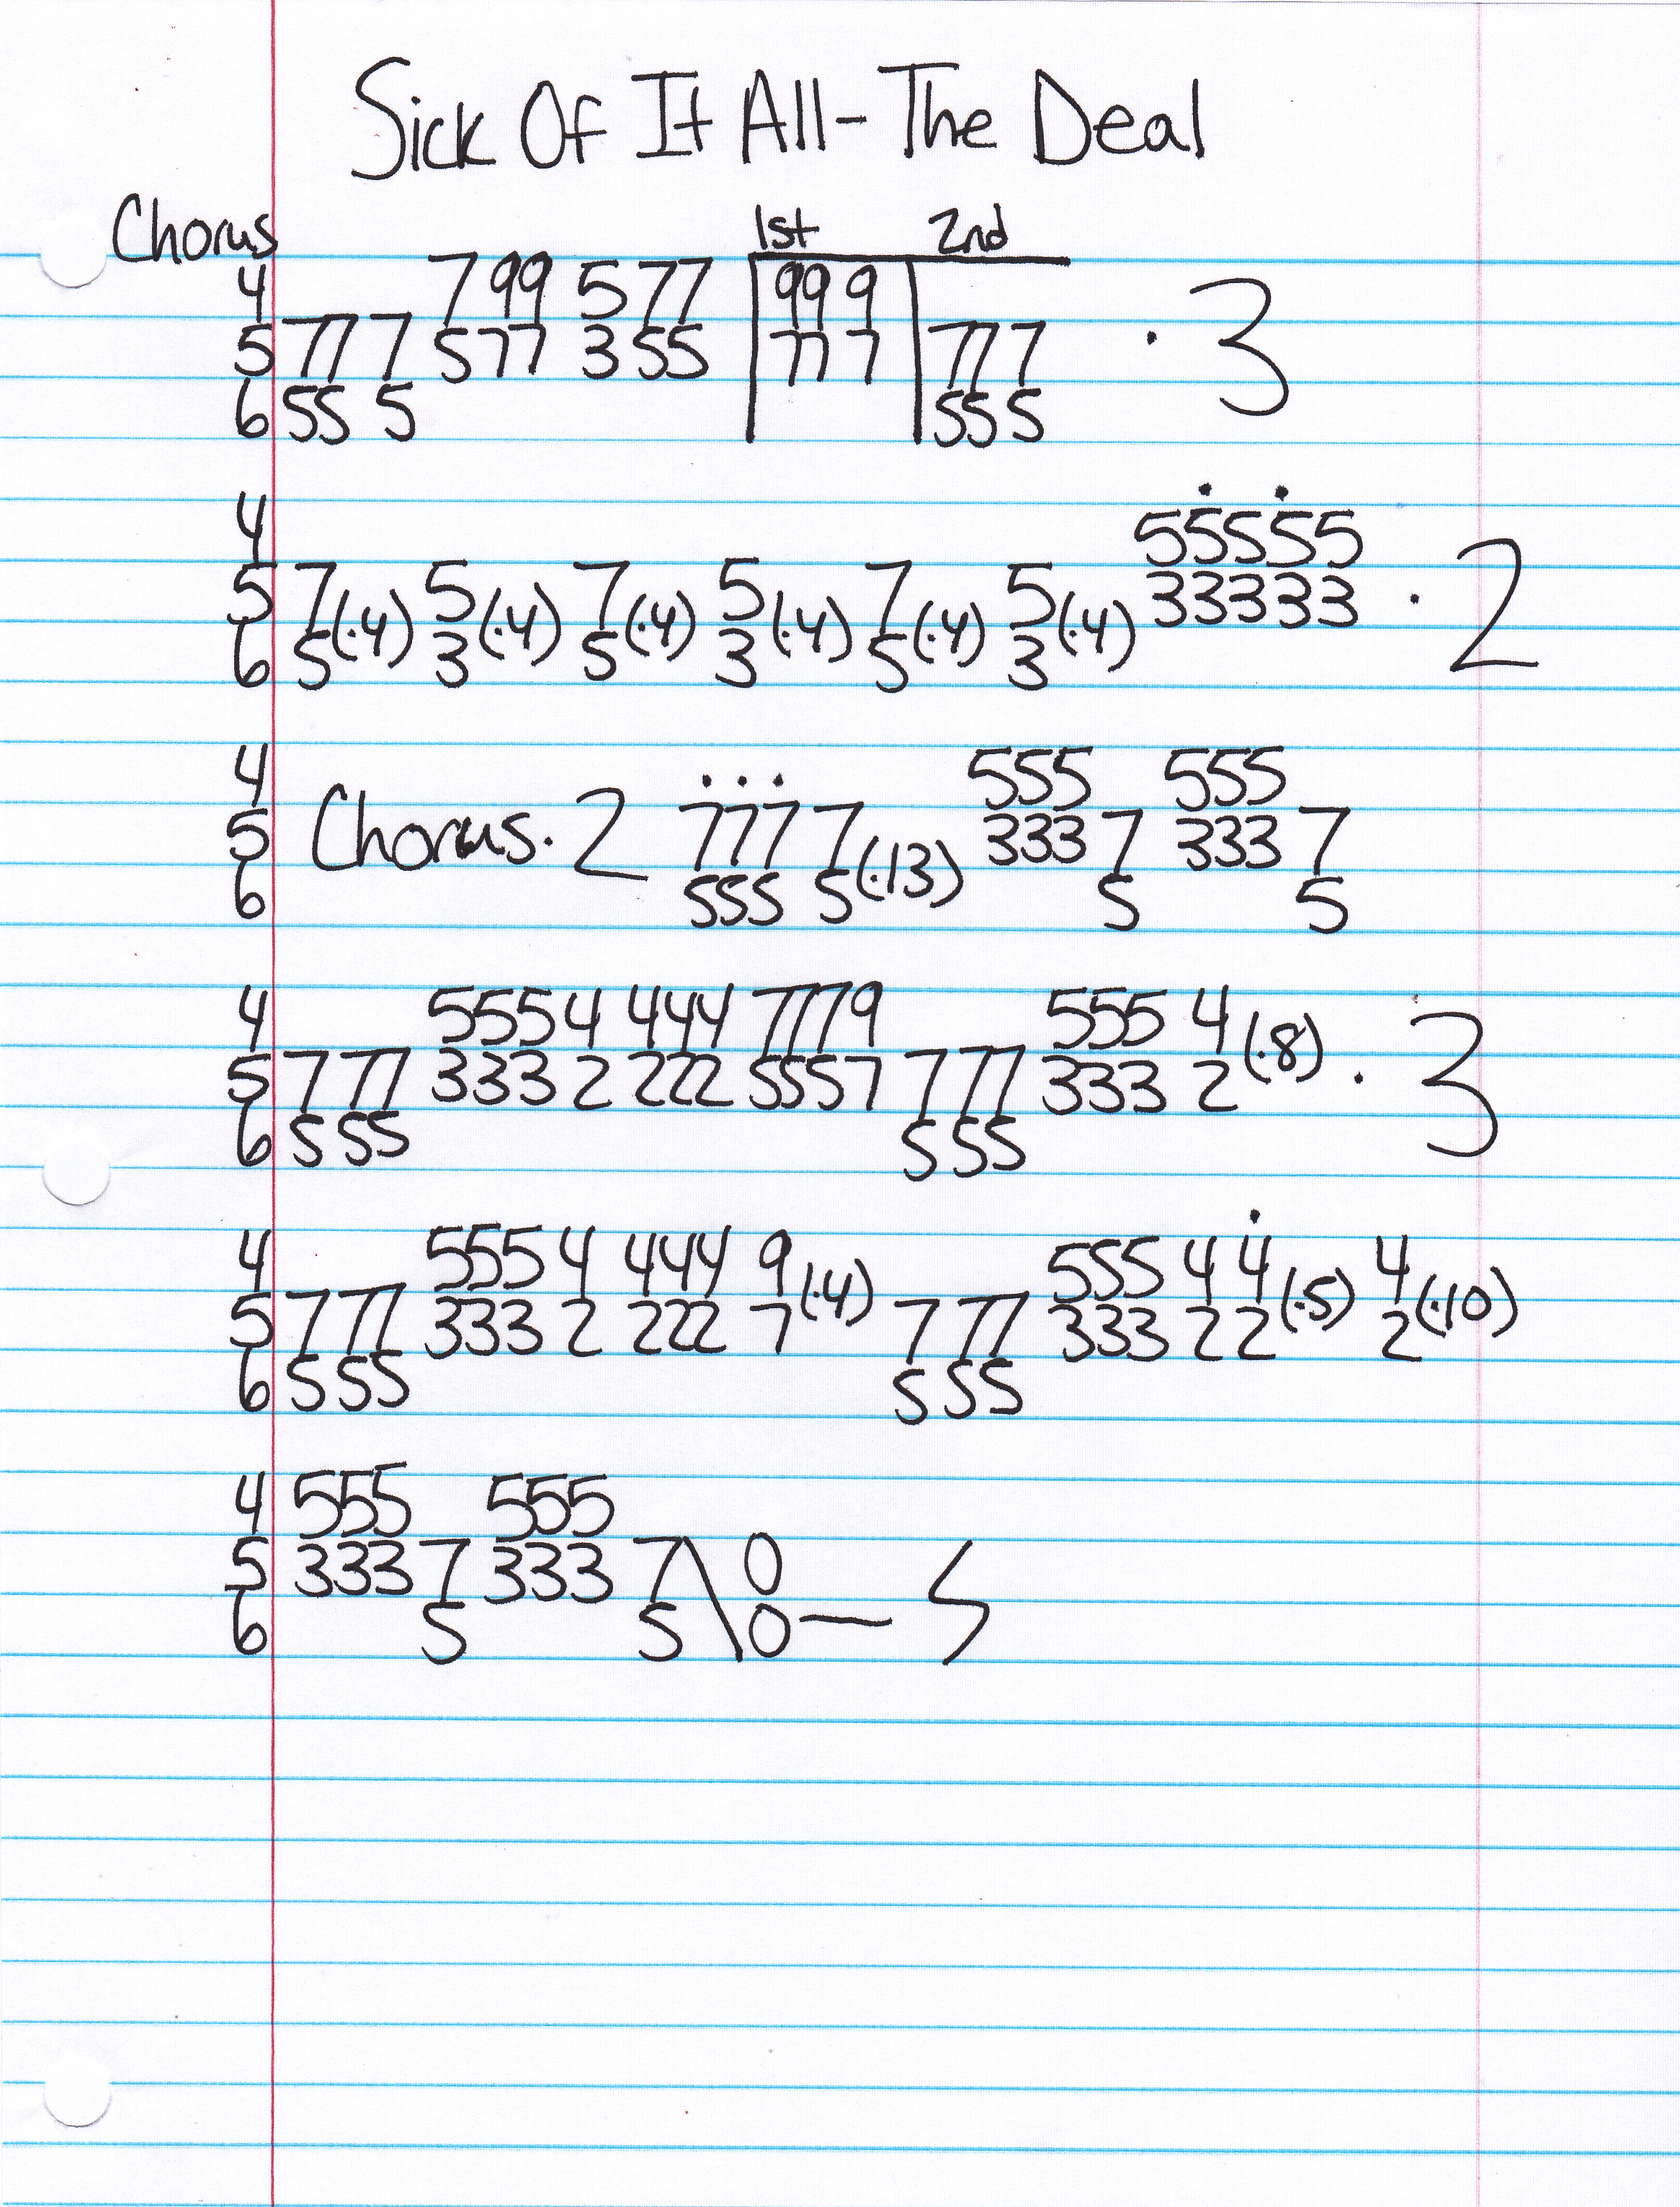 Sick Of It All - The Deal
Chorus
1st 2nd
4 7 99 5 77 99 9
5 77 7 5 77 3 55 77 7 77 7 · 3
6 55 5 55 5
4 5 5 5 5 5
5 7(·4) 5(·4) 7(·4) 5(·4) 7(·4) 5(·4) 3 3 3 3 3 · 2
6 5 3 5 3 5 3
4 555 555
5 Chorus · 2 777 7(·13) 333 7 333 7
6 555 5 5 5
4 555 4 444 777 9 555 4
5 7 77 333 2 222 555 7 7 77 333 2(·8) · 3
6 5 55 5 55
4 555 4 444 9 555 4 4 4
5 7 77 333 2 222 7(·4) 7 77 333 2 2(·5) 2(·10)
6 5 55 5 55
4 555 555
5 333 7 333 7\0
6 5 5\0—